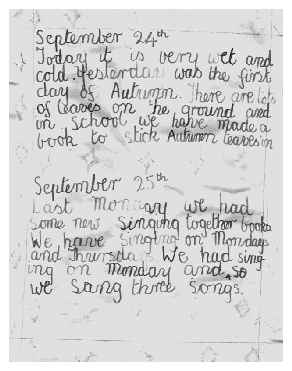 September 24th
Today it is very wet and
cold. Yesterday was the first
day of Autumn. There are lots
of leaves on the ground and
in school we have made a
book to stick Autumn leaves in
September 25th
Last Monday we had
some new singing together books
We have Singing on Mondays
and Thursdays We had sing
ing on Monday and so
we sang three songs.